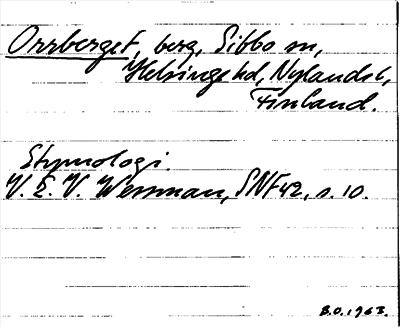 Orrberget, berg, Sibbo sn,
Helsinge hd, Nylands l,
Finland.
Etymologi.
V. E. V. Wessman, SNF 42, s. 10.
B.O. 1963.